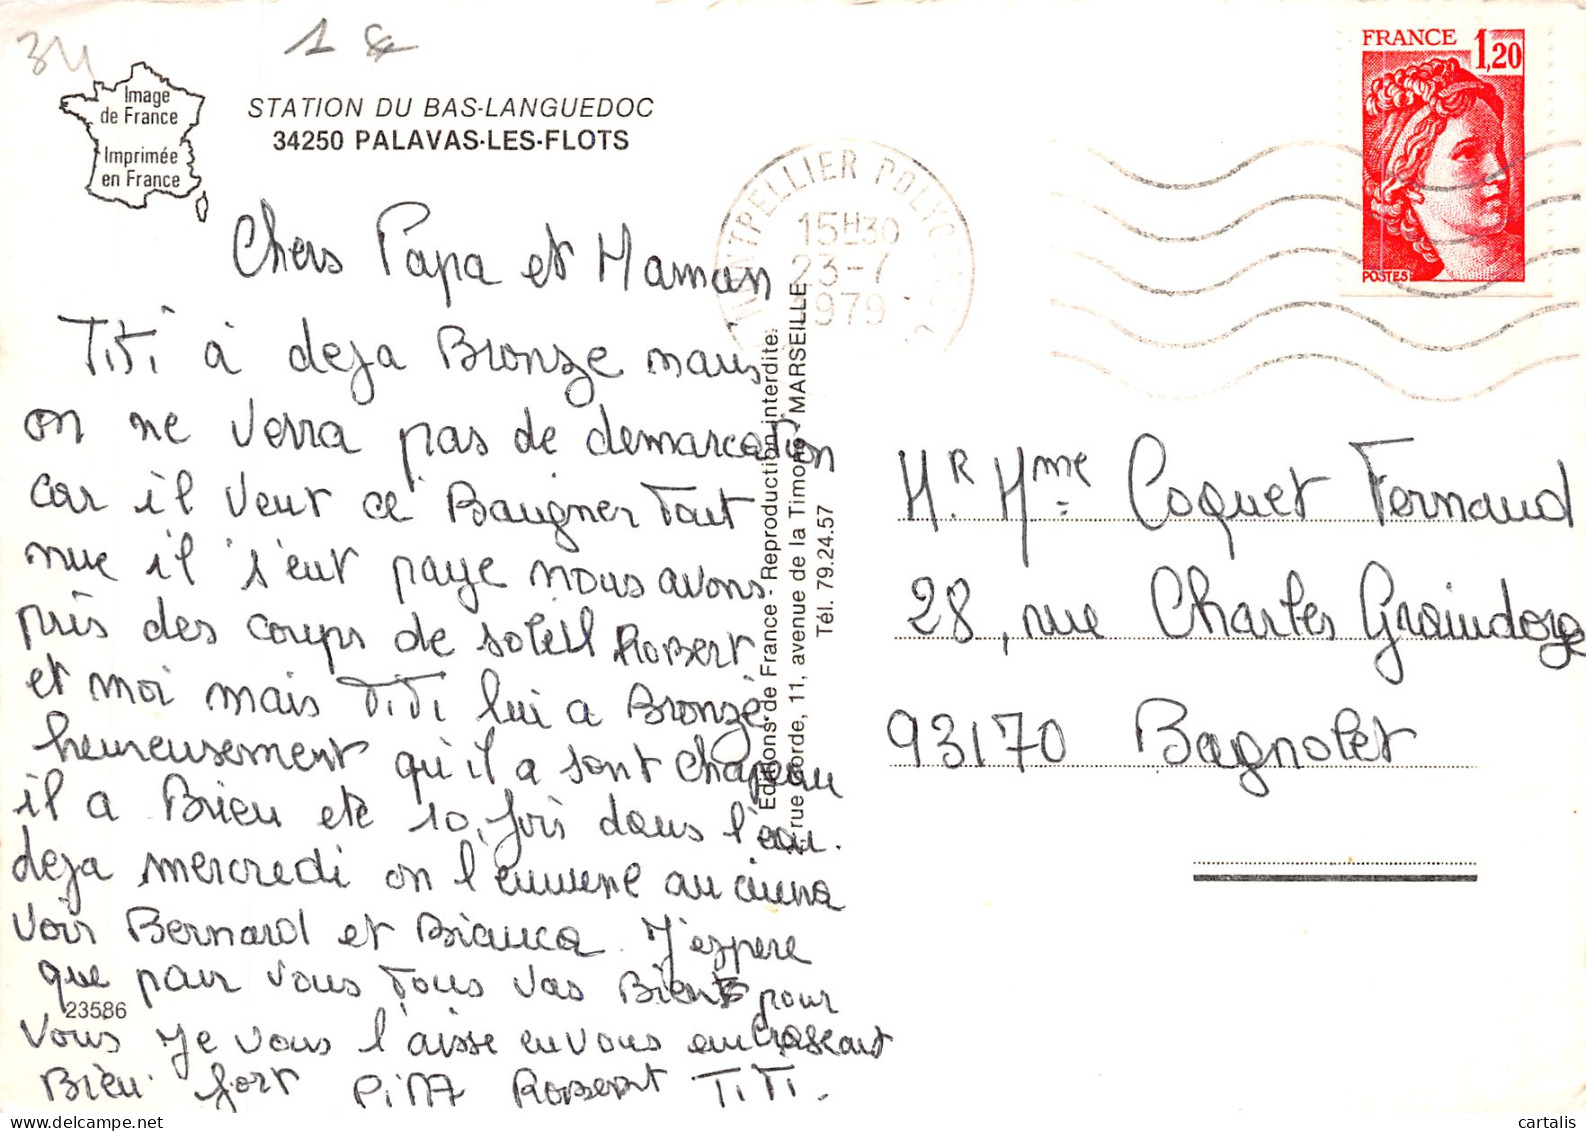 34
1 €
Image
de France
Imprimée
en France
STATION DU BAS-LANGUEDOC
34250 PALAVAS-LES-FLOTS
MONTPELLIER POLYGONE
15H30
23-7
1979
FRANCE 1,20
POSTES
Chers Papa et Maman
TiTi à deja Bronze mais
on ne verra pas de demarcation
car il veut ce Baugner Tout
nue il s'eut paye nous avons
pris des coups de soleil Robert
et moi mais TiTi lui a Bronzé
heureusement qu'il a sont chapeau
il a Bien ete 10 fois dans l'eau.
deja mercredi on l'emmene au cinema
voir Bernard et Bianca. J'espere
que pour vous tous vas Bien pour
vous je vous l'aisse en vous embrassant
Bien fort Robert TiTi.
23586
Editions de France - Reproduction interdite.
rue Borde, 11, avenue de la Timone - MARSEILLE
Tél. 79.24.57
Mr. Mme Coquet Fernand
28, rue Charles Graindorge
93170 Bagnolet
cartalis